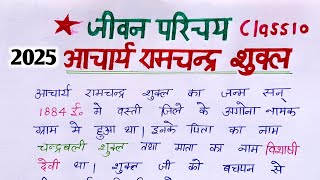 जीवन परिचय Class10
2025 आचार्य रामचन्द्र शुक्ल
आचार्य रामचन्द्र शुक्ल का जन्म सन्
1884 ई० में वस्ती जिले के अगोना नामक
ग्राम मे हुआ था। इनके पिता का नाम
चन्द्रबली शुक्ल तथा माता का नाम विभाषी
देवी था। शुक्ल जी को बचपन से